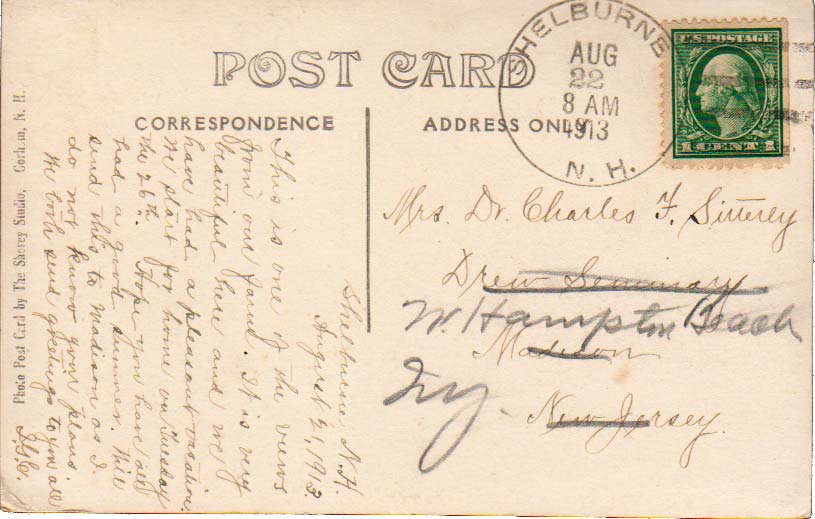 POST CARD
CORRESPONDENCE
ADDRESS ONLY
SHELBURNE
AUG
22
8 AM
1913
N. H.
U.S. POSTAGE
1 CENT 1
Photo Post Card by The Shorey Studio, Gorham, N. H.
Shelburne N.H.
August 21, 1913.
This is one of the views
from our farm. It is very
beautiful here and we
have had a pleasant vacation.
We start for home on Tuesday
the 26th. Hope you have all
had a good summer. Will
send this to Madison as I
do not know your plans.
We both send greetings to you all
Mrs. Dr. Charles F. Sitterley
Drew Seminary
W. Hampton Beach
Madison
N.Y.
New Jersey.